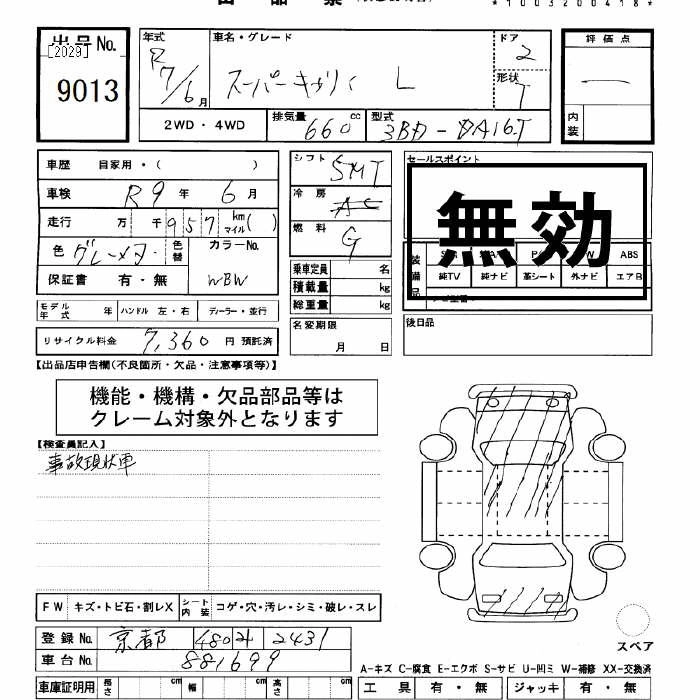 *1003200418*
出品No.
[2029]
9013
年式 R7/6月
車名・グレード スーパーキャリイ L
ドア 2
形状 T
評価点 ―
内装
2WD・4WD
排気量 660 cc
型式 3BD-DA16T
車歴 自家用・( )
車検 R9年 6月
走行 万 千 957 km マイル( )
色 グレーメタ 色替
カラーNo. WBW
保証書 有・無
シフト 5MT
冷房 AC
燃料 G
乗車定員 名
積載量 kg
総重量 kg
セールスポイント
無効
ABS
純TV 純ナビ 革シート 外ナビ エアB
モデル年式 年 ハンドル 左・右 ディーラー・並行
リサイクル料金 7,360 円 預託済
名変期限 月 日
後日品
【出品店申告欄(不良箇所・欠品・注意事項等)】
機能・機構・欠品部品等は
クレーム対象外となります
【検査員記入】
事故現状車
FW キズ・トビ石・割レX シート内装 コゲ・穴・汚レ・シミ・破レ・スレ
登録No. 京都 480 2431
車台No. 881699
スペア
A-キズ C-腐食 E-エクボ S-サビ U-凹ミ W-補修 XX-交換済
車庫証明用 長さ cm 幅 cm 高さ cm
工具 有・無 ジャッキ 有・無